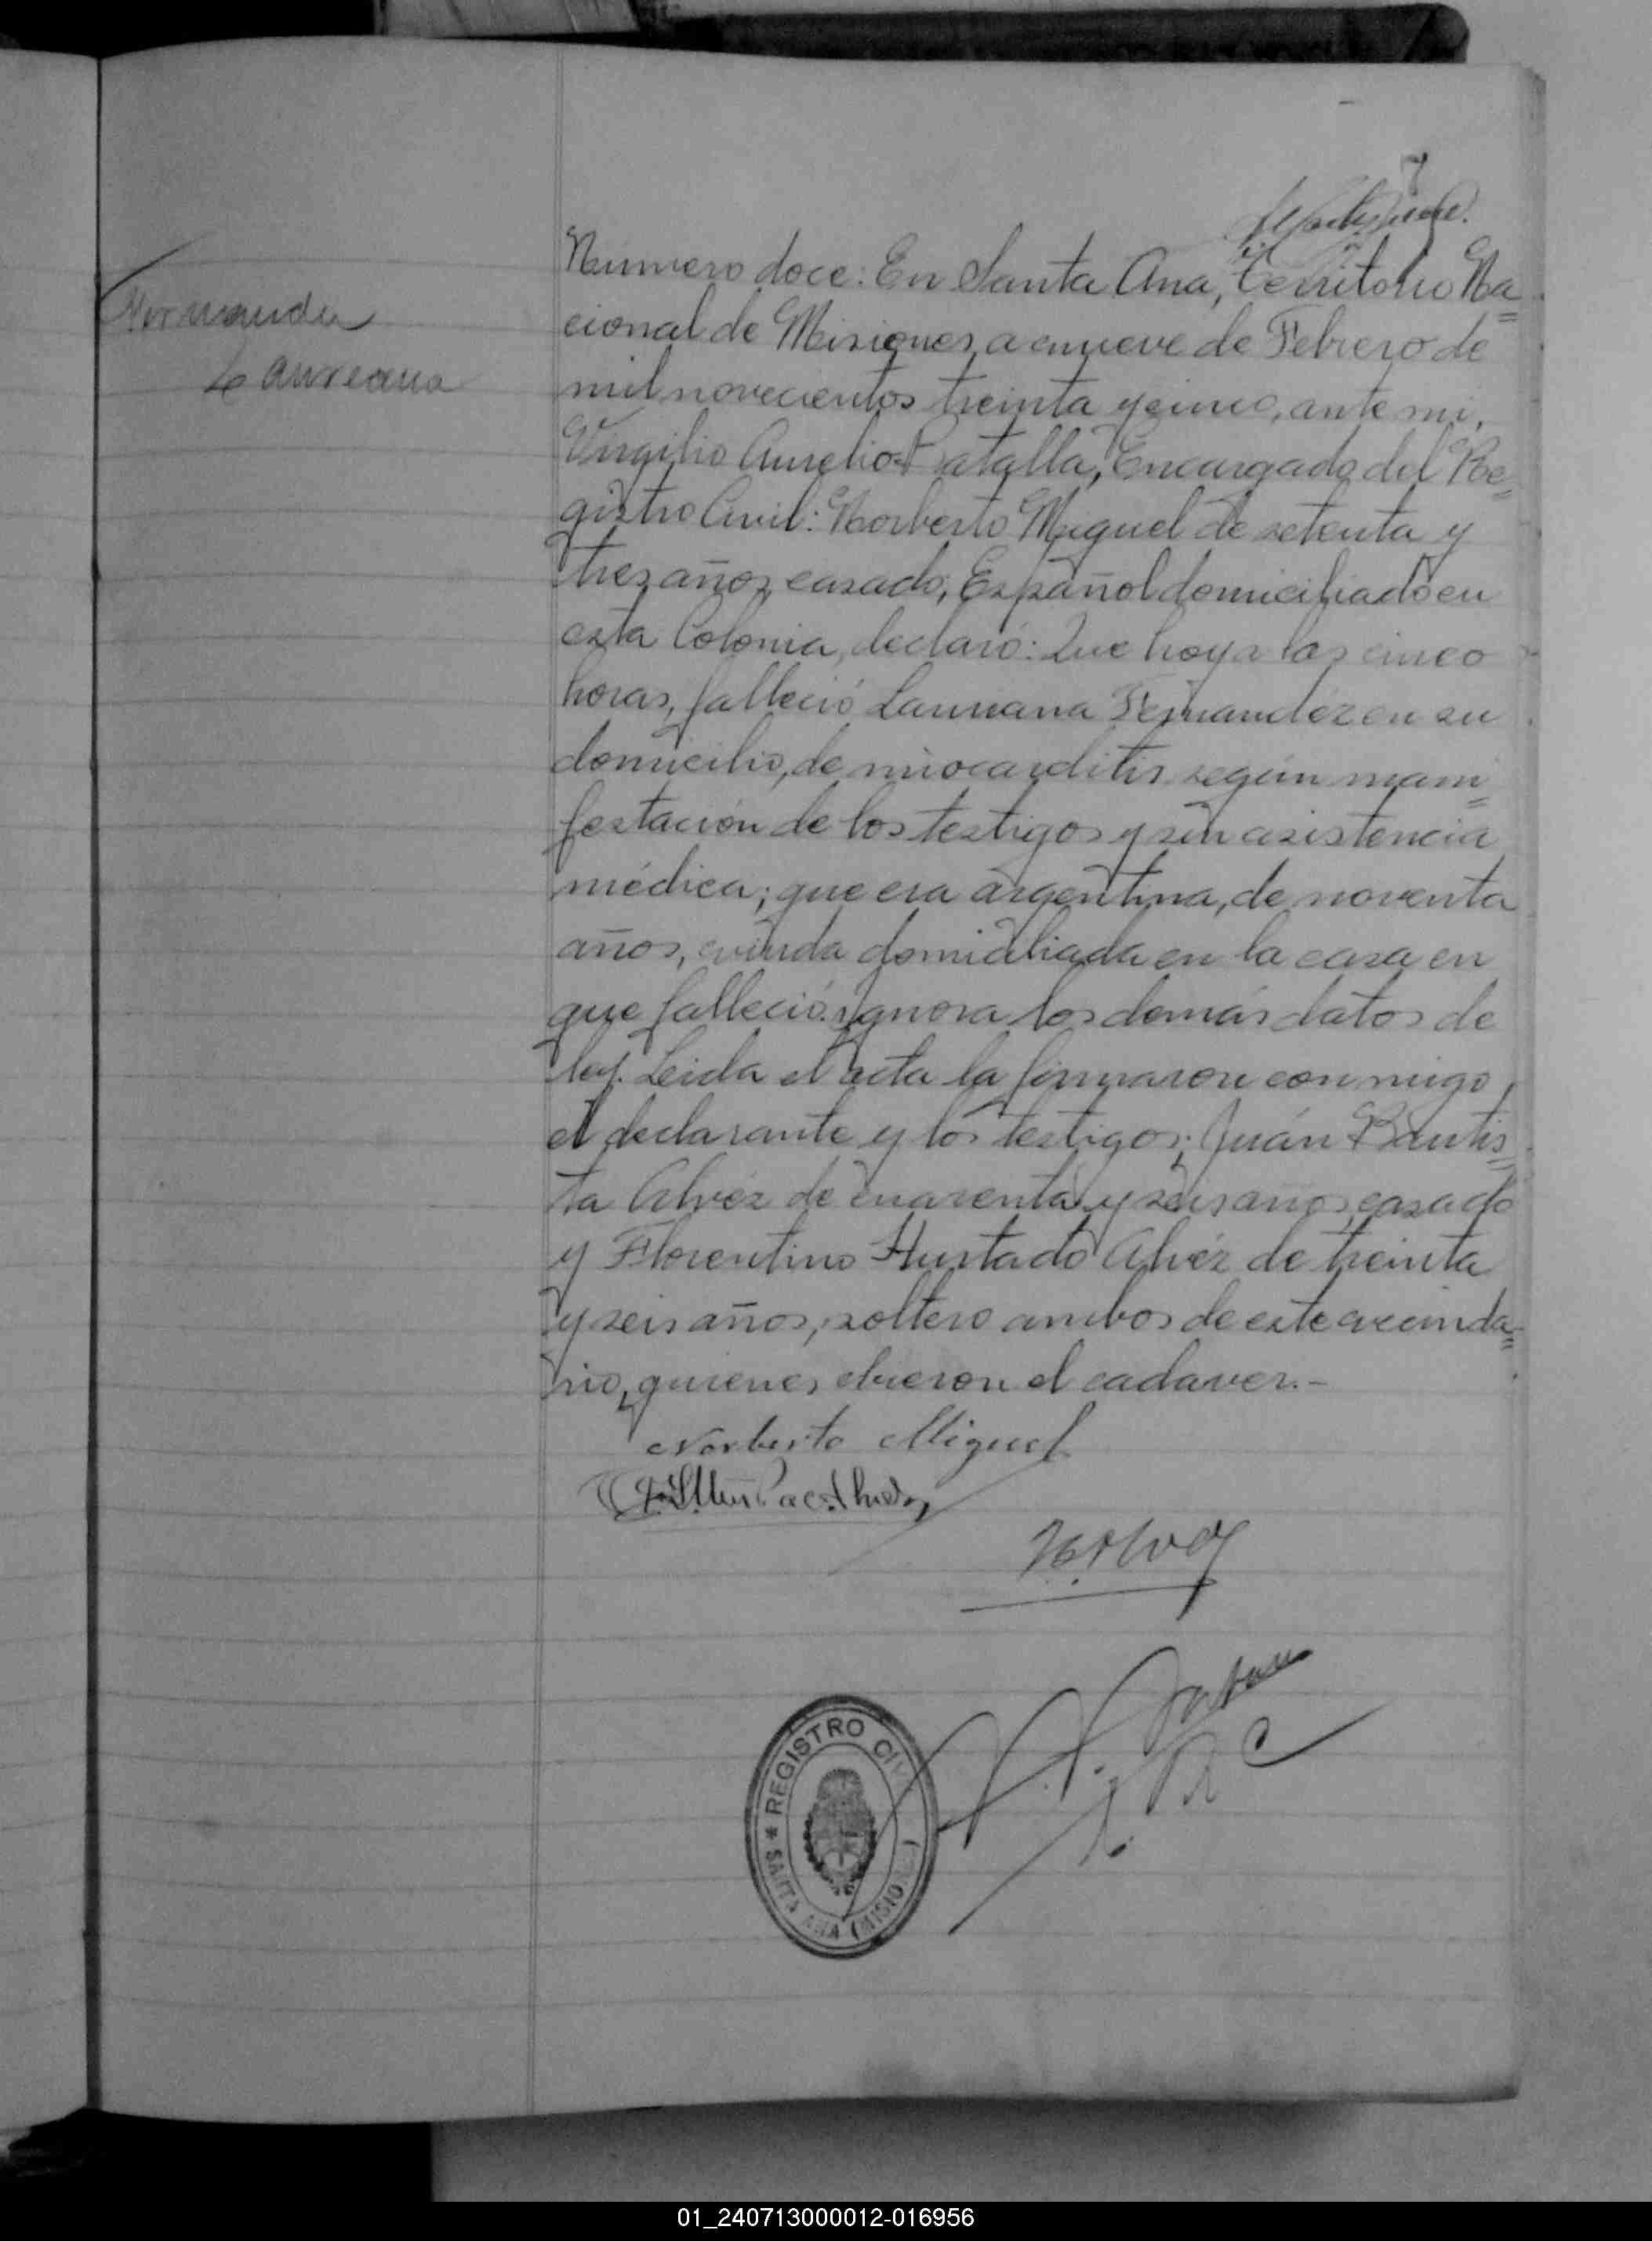 7
Laureana
Número doce: En Santa Ana, Territorio Na=
cional de Misiones, a nueve de Febrero de
mil novecientos treinta y cinco, ante mi,
Virgilio Aurelio Patalla, Encargado del Re=
gistro Civil: Norberto Miguel de setenta y
tres años, casado, Español domiciliado en
esta Colonia, declaró: Que hoy a las cinco
horas, falleció Lauriana Fernandéz en su
domicilio, de miocarditis según mani=
festación de los testigos y sin asistencia
médica; que era argentina, de noventa
años, viuda domiciliada en la casa en
que falleció. Ignora los demás datos de
ley. Leida el acta la firmaron conmigo,
el declarante y los testigos; Juán Bautis=
ta Alvéz de cuarenta y seis años, casado
y Florentino Hurtado Alvéz de treinta
y seis años, soltero ambos de este vecinda=
rio, quienes vieron el cadaver.-
Norberto Miguel
REGISTRO CIVIL
* SANTA ANA (MISIONES)
01_240713000012-016956